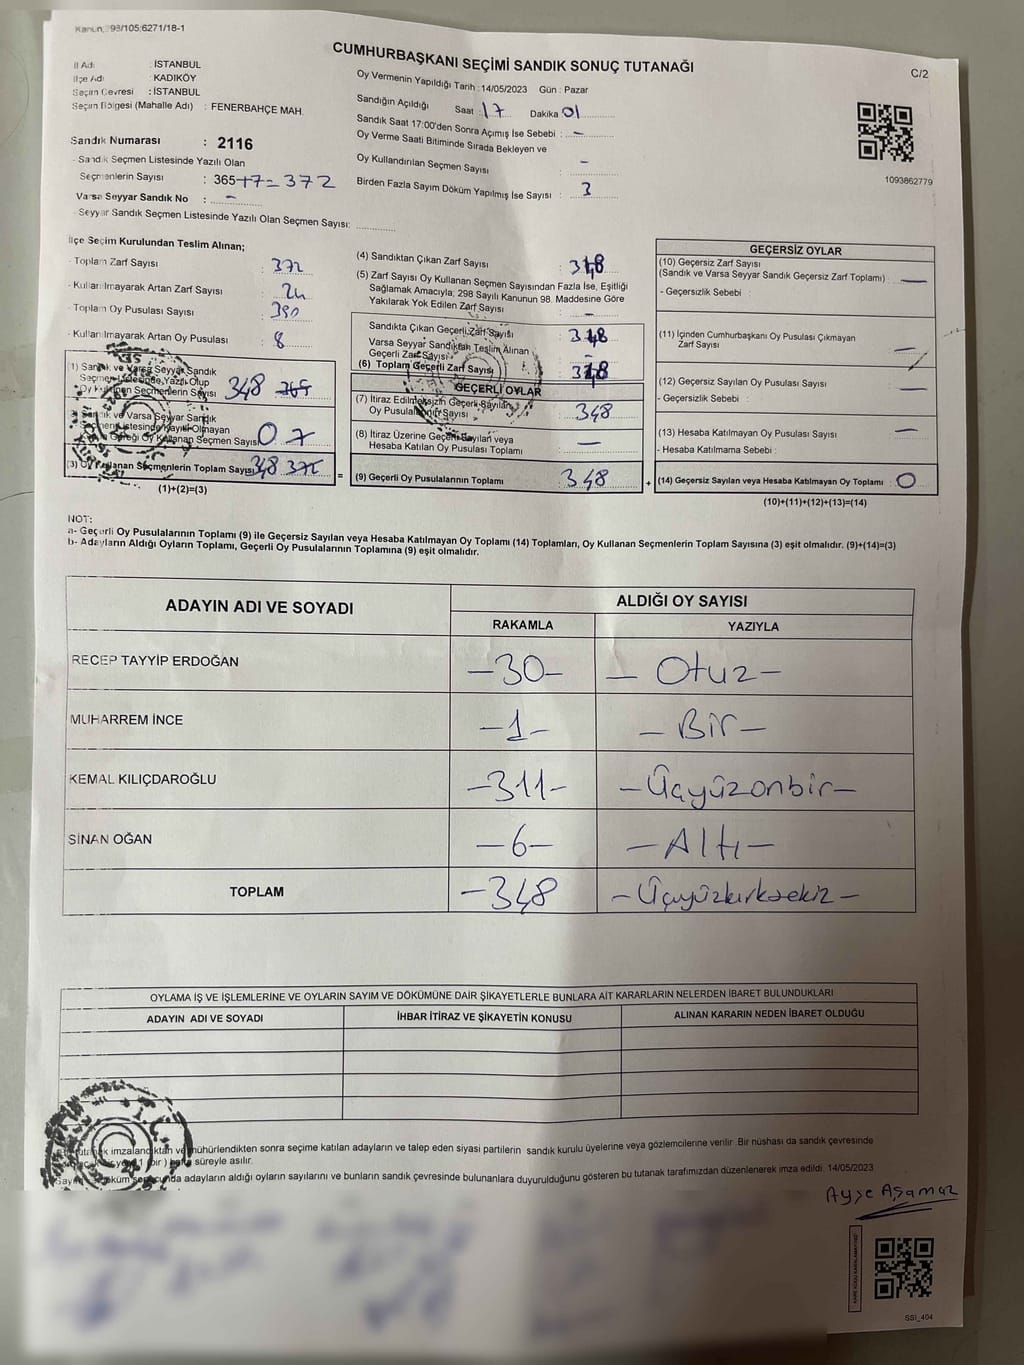 Kanun, 298/105;6271/18-1
CUMHURBAŞKANI SEÇİMİ SANDIK SONUÇ TUTANAĞI
C/2
İl Adı : İSTANBUL
İlçe Adı : KADIKÖY
Seçim Çevresi : İSTANBUL
Seçim Bölgesi (Mahalle Adı) : FENERBAHÇE MAH.
Oy Vermenin Yapıldığı Tarih :14/05/2023 Gün : Pazar
Sandığın Açıldığı Saat : 17 Dakika 01
Sandık Saat 17:00'den Sonra Açılmış İse Sebebi : –
Oy Verme Saati Bitiminde Sırada Bekleyen ve
Oy Kullandırılan Seçmen Sayısı : –
Birden Fazla Sayım Döküm Yapılmış İse Sayısı : 3
1093862779
Sandık Numarası : 2116
- Sandık Seçmen Listesinde Yazılı Olan
Seçmenlerin Sayısı : 365+7=372
Varsa Seyyar Sandık No : –
- Seyyar Sandık Seçmen Listesinde Yazılı Olan Seçmen Sayısı:
İlçe Seçim Kurulundan Teslim Alınan;
- Toplam Zarf Sayısı : 372
- Kullanılmayarak Artan Zarf Sayısı : 24
- Toplam Oy Pusulası Sayısı : 380
- Kullanılmayarak Artan Oy Pusulası : 8
(1) Sandık ve Varsa Seyyar Sandık
Seçmen Listesinde Yazılı Olup
Oy Kullanan Seçmenlerin Sayısı 348 365
Sandık ve Varsa Seyyar Sandık
Seçmen Listesinde Kayıtlı Olmayan
Gereği Oy Kullanan Seçmen Sayısı 0 7
(3) Oy Kullanan Seçmenlerin Toplam Sayısı 348 372
(1)+(2)=(3)
=
(4) Sandıktan Çıkan Zarf Sayısı : 348
(5) Zarf Sayısı Oy Kullanan Seçmen Sayısından Fazla İse, Eşitliği
Sağlamak Amacıyla, 298 Sayılı Kanunun 98. Maddesine Göre
Yakılarak Yok Edilen Zarf Sayısı : –
Sandıkta Çıkan Geçerli Zarf Sayısı : 348
Varsa Seyyar Sandıktan Teslim Alınan
Geçerli Zarf Sayısı : –
(6) Toplam Geçerli Zarf Sayısı : 348
GEÇERLİ OYLAR
(7) İtiraz Edilmeksizin Geçerli Sayılan
Oy Pusulalarının Sayısı : 348
(8) İtiraz Üzerine Geçerli Sayılan veya
Hesaba Katılan Oy Pusulası Toplamı : –
(9) Geçerli Oy Pusulalarının Toplamı : 348
+
GEÇERSİZ OYLAR
(10) Geçersiz Zarf Sayısı
(Sandık ve Varsa Seyyar Sandık Geçersiz Zarf Toplamı) : –
- Geçersizlik Sebebi :
(11) İçinden Cumhurbaşkanı Oy Pusulası Çıkmayan
Zarf Sayısı : –
(12) Geçersiz Sayılan Oy Pusulası Sayısı : –
- Geçersizlik Sebebi :
(13) Hesaba Katılmayan Oy Pusulası Sayısı : –
- Hesaba Katılmama Sebebi :
(14) Geçersiz Sayılan veya Hesaba Katılmayan Oy Toplamı : 0
(10)+(11)+(12)+(13)=(14)
NOT:
a- Geçerli Oy Pusulalarının Toplamı (9) ile Geçersiz Sayılan veya Hesaba Katılmayan Oy Toplamı (14) Toplamları, Oy Kullanan Seçmenlerin Toplam Sayısına (3) eşit olmalıdır. (9)+(14)=(3)
b- Adayların Aldığı Oyların Toplamı, Geçerli Oy Pusulalarının Toplamına (9) eşit olmalıdır.
ADAYIN ADI VE SOYADI
ALDIĞI OY SAYISI
RAKAMLA YAZIYLA
RECEP TAYYİP ERDOĞAN -30- - Otuz -
MUHARREM İNCE -1- - Bir -
KEMAL KILIÇDAROĞLU -311- - Üçyüzonbir -
SİNAN OĞAN -6- - Altı -
TOPLAM -348 - Üçyüzkırksekiz -
OYLAMA İŞ VE İŞLEMLERİNE VE OYLARIN SAYIM VE DÖKÜMÜNE DAİR ŞİKAYETLERLE BUNLARA AİT KARARLARIN NELERDEN İBARET BULUNDUKLARI
ADAYIN ADI VE SOYADI İHBAR İTİRAZ VE ŞİKAYETİN KONUSU ALINAN KARARIN NEDEN İBARET OLDUĞU
T.C.
tutanak imzalandıktan ve mühürlendikten sonra seçime katılan adayların ve talep eden siyasi partilerin sandık kurulu üyelerine veya gözlemcilerine verilir. Bir nüshası da sandık çevresinde
1 ( bir ) hafta süreyle asılır.
Sayım döküm sonucunda adayların aldığı oyların sayılarını ve bunların sandık çevresinde bulunanlara duyurulduğunu gösteren bu tutanak tarafımızdan düzenlenerek imza edildi. 14/05/2023
Ayşe Aşamaz
SSI_404